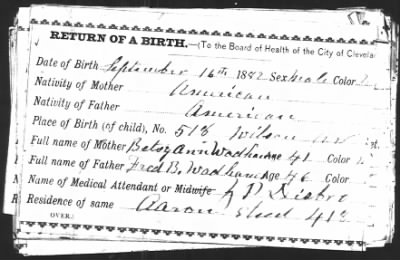 RETURN OF A BIRTH.—(To the Board of Health of the City of Clevelan
Date of Birth September 16th 1892 Sex male Color
Nativity of Mother American
Nativity of Father American
Place of Birth (of child), No. 518 Wilson av St.
Full name of Mother Betsy Ann Wadham Age 41 Color
Full name of Father Fred B. Wadham Age 46 Color
Name of Medical Attendant or Midwife
Residence of same Aaron street 413
OVER.